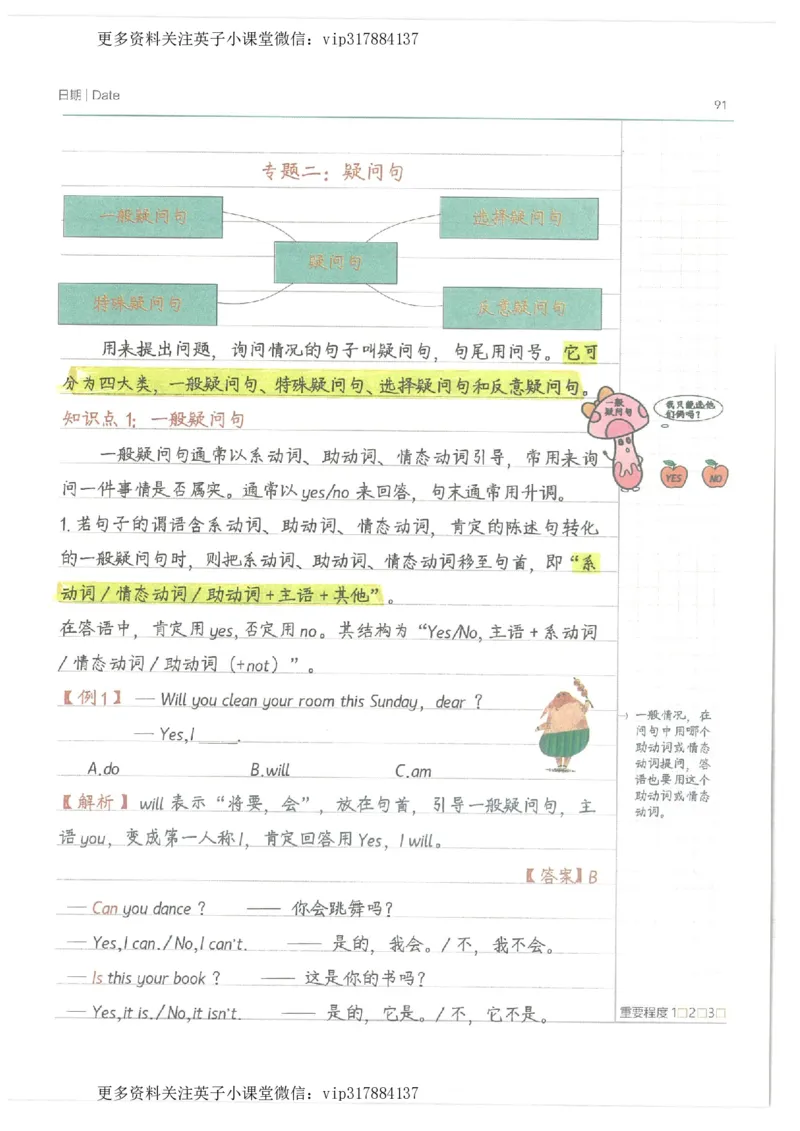 更多资料关注英子小课堂微信：vip317884137
日期 | Date
91
专题二：疑问句
一般疑问句
选择疑问句
疑问句
特殊疑问句
反意疑问句
用来提出问题，询问情况的句子叫疑问句，句尾用问号。它可
分为四大类，一般疑问句、特殊疑问句、选择疑问句和反意疑问句。
一般
疑问句
我只能选他
们俩吗？
YES
NO
知识点 1：一般疑问句
一般疑问句通常以系动词、助动词、情态动词引导，常用来询
问一件事情是否属实。通常以 yes/no 来回答，句末通常用升调。
1. 若句子的谓语含系动词、助动词、情态动词，肯定的陈述句转化
的一般疑问句时，则把系动词、助动词、情态动词移至句首，即“系
动词 / 情态动词 / 助动词 + 主语 + 其他”。
在答语中，肯定用 yes, 否定用 no。其结构为“Yes/No, 主语 + 系动词
/ 情态动词 / 助动词（+not）”。
【例1】 — Will you clean your room this Sunday，dear ？
— Yes,I ____.
A.do B.will C.am
→ 一般情况，在
问句中用哪个
助动词或情态
动词提问，答
语也要用这个
助动词或情态
动词。
【解析】 will 表示“将要，会”，放在句首，引导一般疑问句，主
语 you，变成第一人称 I，肯定回答用 Yes，I will。
【答案】B
— Can you dance ？ —— 你会跳舞吗？
— Yes,I can. / No,I can't. —— 是的，我会。/ 不，我不会。
— Is this your book ？ —— 这是你的书吗？
— Yes,it is. / No,it isn't. —— 是的，它是。/ 不，它不是。
重要程度 1□2□3□
更多资料关注英子小课堂微信：vip317884137